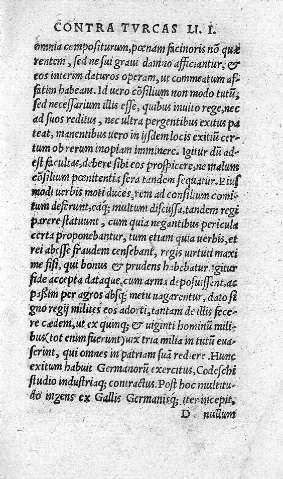 CONTRA TVRCAS LI. I.
omnia compositurum, pœnam facinoris nõ quæ
rentem, sed ne sui graui damno afficiantur, &
eos interim daturos operam, ut commeatum af-
fatim habeant. Id uero cõsilium non modo tutũ,
sed necessarium illis esse, quibus inuito rege, nec
ad suos reditus, nec ultra pergentibus exitus pa
teat, manentibus uero in ijsdem locis exitiũ cer
tum ob rerum inopiam imminere. Igitur dũ ad-
est facultas, debere sibi eos prospicere, ne malum
cõsilium pœnitentia sera tandem sequatur. Eius
modi uerbis moti duces, rem ad consilium comi
tum deferunt, eáq; multum discussa, tandem regi
parere statuunt, cum quia negantibus pericula
certa proponebantur, tum etiam quia uerbis, et
rei abesse fraudem censebant, regis uirtuti maxi
me fisi, qui bonus & prudens habebatur. igitur
fide accepta dataque, cum arma deposuissent, ac
paßim per agros absq; metu uagarentur, dato si
gno regij milites eos adorti, tantam de illis fece-
re cædem, ut ex quinq; & uiginti hominũ milli-
bus (tot enim fuerunt) uix tria milia in tutũ eua-
serint, qui omnes in patriam suã rediere. Hunc
exitum habuit Germanorũ exercitus, Codeschi
studio industriaq; contractus. Post hoc multitu-
do ingens ex Gallis Germanisq; iter incepit,
D nullum